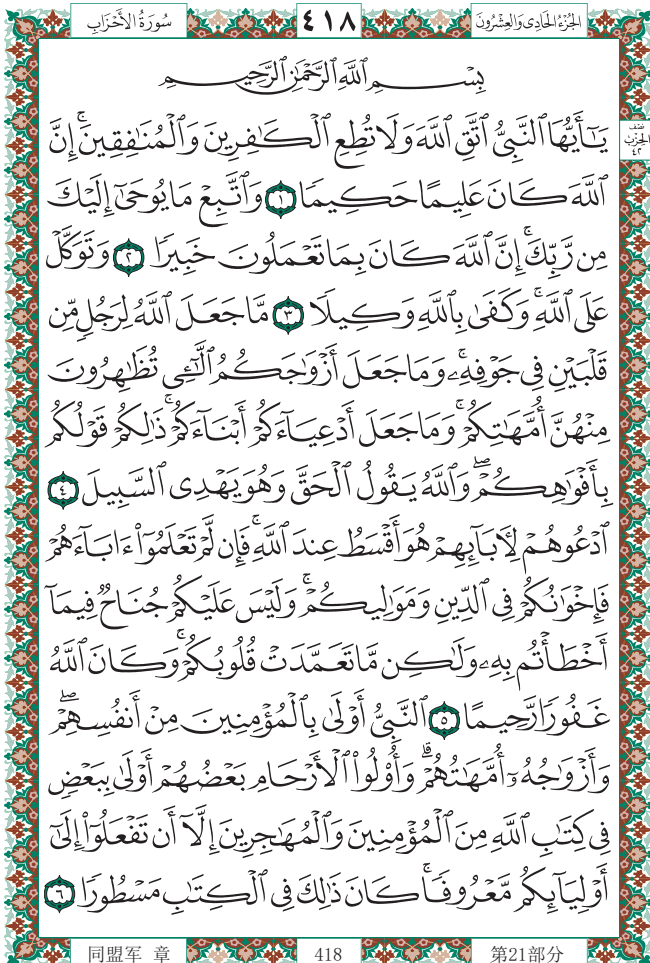 الجُزْءُ الحَادِى وَالعِشْرُونَ ٤١٨ سُورَةُ الأَحْزَابِ
بِسْمِ ٱللَّهِ ٱلرَّحْمَٰنِ ٱلرَّحِيمِ
يَٰٓأَيُّهَا ٱلنَّبِىُّ ٱتَّقِ ٱللَّهَ وَلَا تُطِعِ ٱلْكَٰفِرِينَ وَٱلْمُنَٰفِقِينَ ۚ إِنَّ
نصف
الحزب
٤٢
ٱللَّهَ كَانَ عَلِيمًا حَكِيمًا ١ وَٱتَّبِعْ مَا يُوحَىٰٓ إِلَيْكَ
مِن رَّبِّكَ ۚ إِنَّ ٱللَّهَ كَانَ بِمَا تَعْمَلُونَ خَبِيرًا ٢ وَتَوَكَّلْ
عَلَى ٱللَّهِ ۚ وَكَفَىٰ بِٱللَّهِ وَكِيلًا ٣ مَّا جَعَلَ ٱللَّهُ لِرَجُلٍ مِّن
قَلْبَيْنِ فِى جَوْفِهِۦ ۚ وَمَا جَعَلَ أَزْوَٰجَكُمُ ٱلَّٰٓـِٔى تُظَٰهِرُونَ
مِنْهُنَّ أُمَّهَٰتِكُمْ ۚ وَمَا جَعَلَ أَدْعِيَآءَكُمْ أَبْنَآءَكُمْ ۚ ذَٰلِكُمْ قَوْلُكُم
بِأَفْوَٰهِكُمْ ۖ وَٱللَّهُ يَقُولُ ٱلْحَقَّ وَهُوَ يَهْدِى ٱلسَّبِيلَ ٤
ٱدْعُوهُمْ لِءَابَآئِهِمْ هُوَ أَقْسَطُ عِندَ ٱللَّهِ ۚ فَإِن لَّمْ تَعْلَمُوٓا۟ ءَابَآءَهُمْ
فَإِخْوَٰنُكُمْ فِى ٱلدِّينِ وَمَوَٰلِيكُمْ ۚ وَلَيْسَ عَلَيْكُمْ جُنَاحٌ فِيمَآ
أَخْطَأْتُم بِهِۦ وَلَٰكِن مَّا تَعَمَّدَتْ قُلُوبُكُمْ ۚ وَكَانَ ٱللَّهُ
غَفُورًا رَّحِيمًا ٥ ٱلنَّبِىُّ أَوْلَىٰ بِٱلْمُؤْمِنِينَ مِنْ أَنفُسِهِمْ ۖ
وَأَزْوَٰجُهُۥٓ أُمَّهَٰتُهُمْ ۗ وَأُو۟لُوا۟ ٱلْأَرْحَامِ بَعْضُهُمْ أَوْلَىٰ بِبَعْضٍ
فِى كِتَٰبِ ٱللَّهِ مِنَ ٱلْمُؤْمِنِينَ وَٱلْمُهَٰجِرِينَ إِلَّآ أَن تَفْعَلُوٓا۟ إِلَىٰٓ
أَوْلِيَآئِكُم مَّعْرُوفًا ۚ كَانَ ذَٰلِكَ فِى ٱلْكِتَٰبِ مَسْطُورًا ٦
同盟军 章 418 第21部分